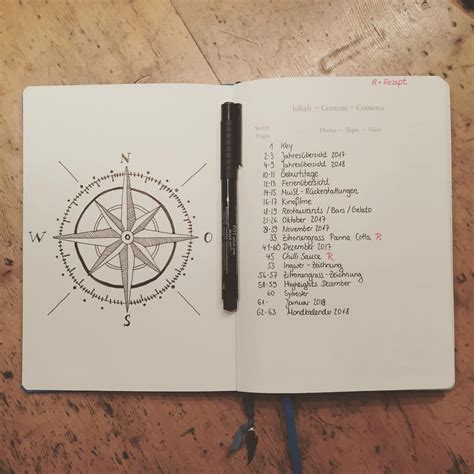 N
W O
S
R = Rezept
Inhalt · Content · Contenu
Seiten Thema · Topic · Sujet
Pages
1 Key
2-3 Jahresübersicht 2017
4-9 Jahresübersicht 2018
10-11 Geburtstage
12-13 Ferienübersicht
14-15 MwSt - Rückerstattungen
16-17 Kinofilme
18-19 Restaurants / Bars / Gelato
21-26 Oktober 2017
27-39 November 2017
33 Zitronengrass Panna Cotta R
41-60 Dezember 2017
45 Chilli Sauce R
53 Ingwer - Zeichnung
56-57 Zitronengrass - Zeichnung
58-59 Highlights Dezember
60 Sylvester
61- Januar 2018
62-63 Mondkalender 2018